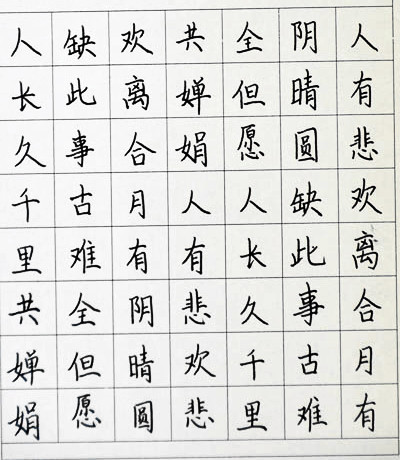 人有悲欢离合月有
阴晴圆缺此事古难
全但愿人长久千里
共婵娟人有悲欢悲
欢离合月有阴晴圆
缺此事古难全但愿
人长久千里共婵娟